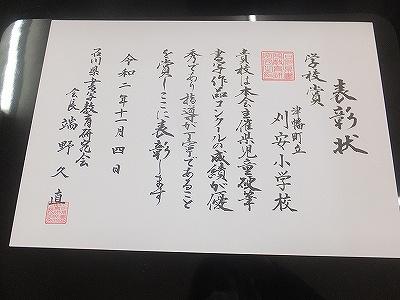 表彰状
学校賞
津幡町立
刈安小学校
貴校は本会主催県児童硬筆
書写作品コンクールの成績が優
秀であり指導が立派であること
を賞しここに表彰します
令和二年十一月四日
石川県書写教育研究会
会長 端野久直